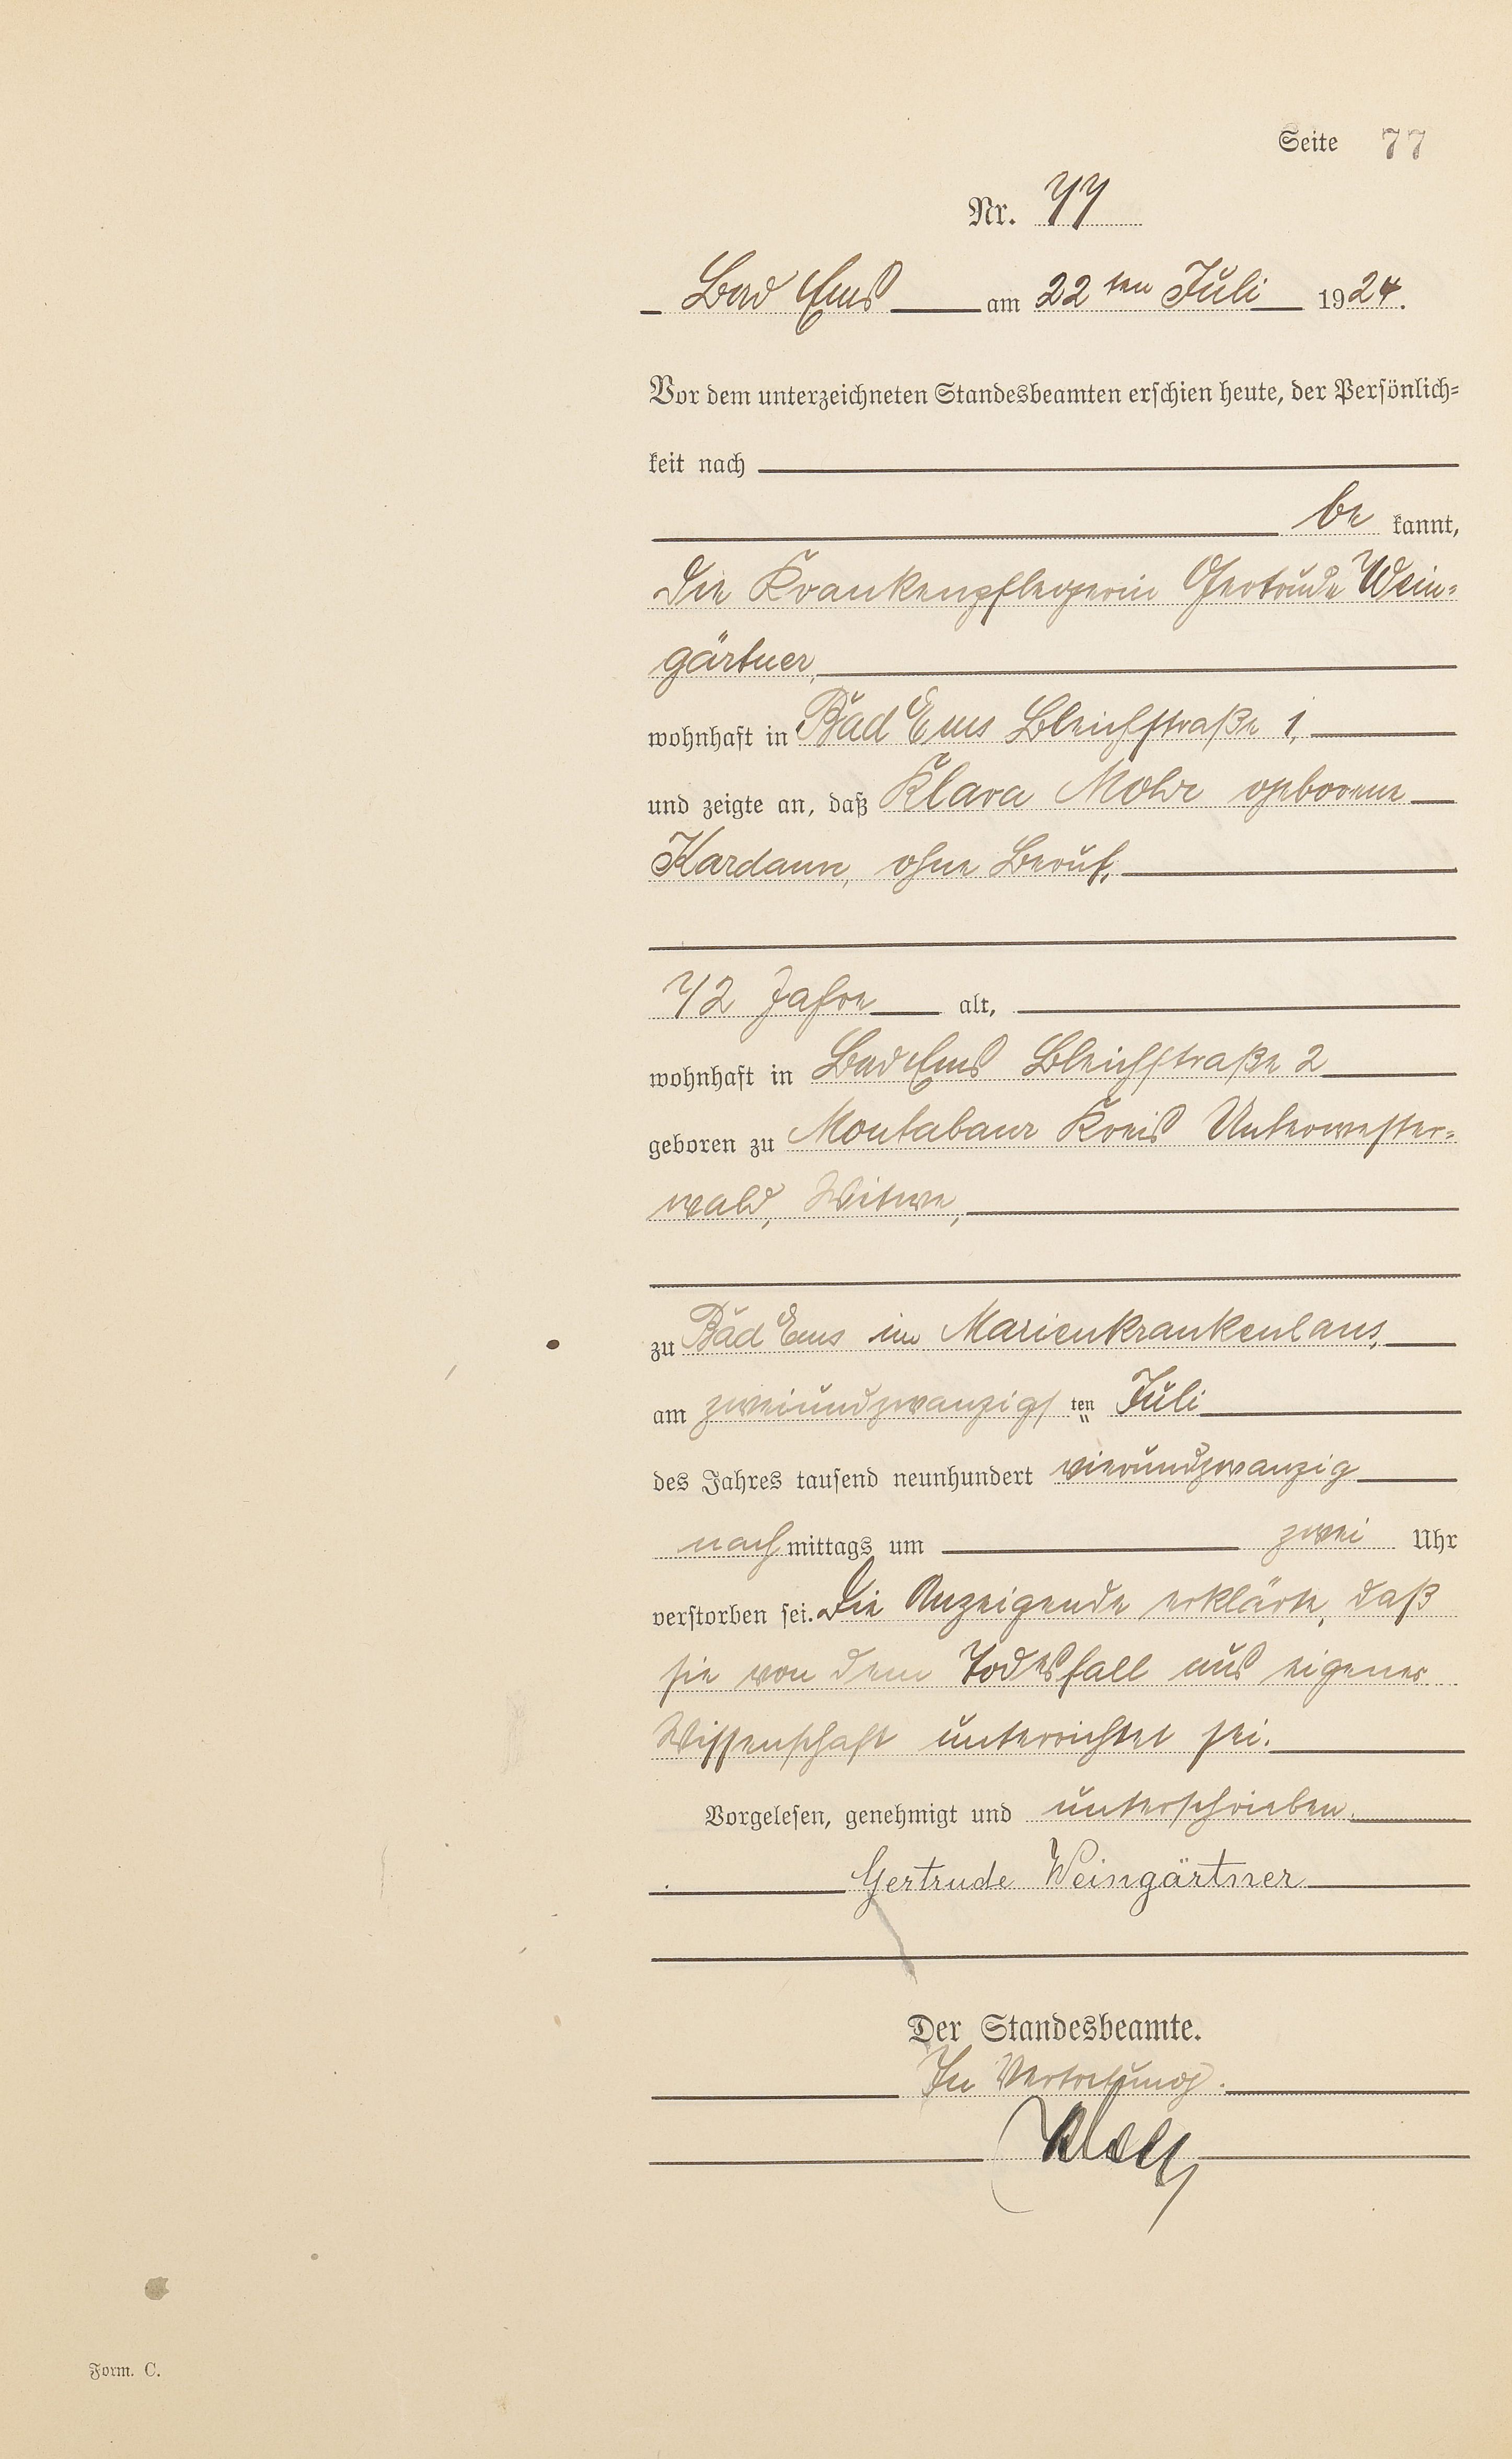 Seite 77
Nr. 77
Bad Ems am 22ten Juli 1924.
Vor dem unterzeichneten Standesbeamten erschien heute, der Persönlich=
keit nach
be kannt,
die Krankenpflegerin Gertrude Wein-
gärtner,
wohnhaft in Bad Ems Bleichstraße 1,
und zeigte an, daß Klara Mohr geborene
Kardann, ohne Beruf,
72 Jahre alt,
wohnhaft in Bad Ems Bleichstraße 2
geboren zu Montabaur Kreis Unterwester-
wald, Witwe,
zu Bad Ems im Marienkrankenhaus,
am zweiundzwanzigsten Juli
des Jahres tausend neunhundert vierundzwanzig
nachmittags um zwei Uhr
verstorben sei. Die Anzeigende erklärte, daß
sie von dem Todesfall aus eigener
Wissenschaft unterrichtet sei.
Vorgelesen, genehmigt und unterschrieben.
Gertrude Weingärtner
Der Standesbeamte.
In Vertretung.
Form. C.